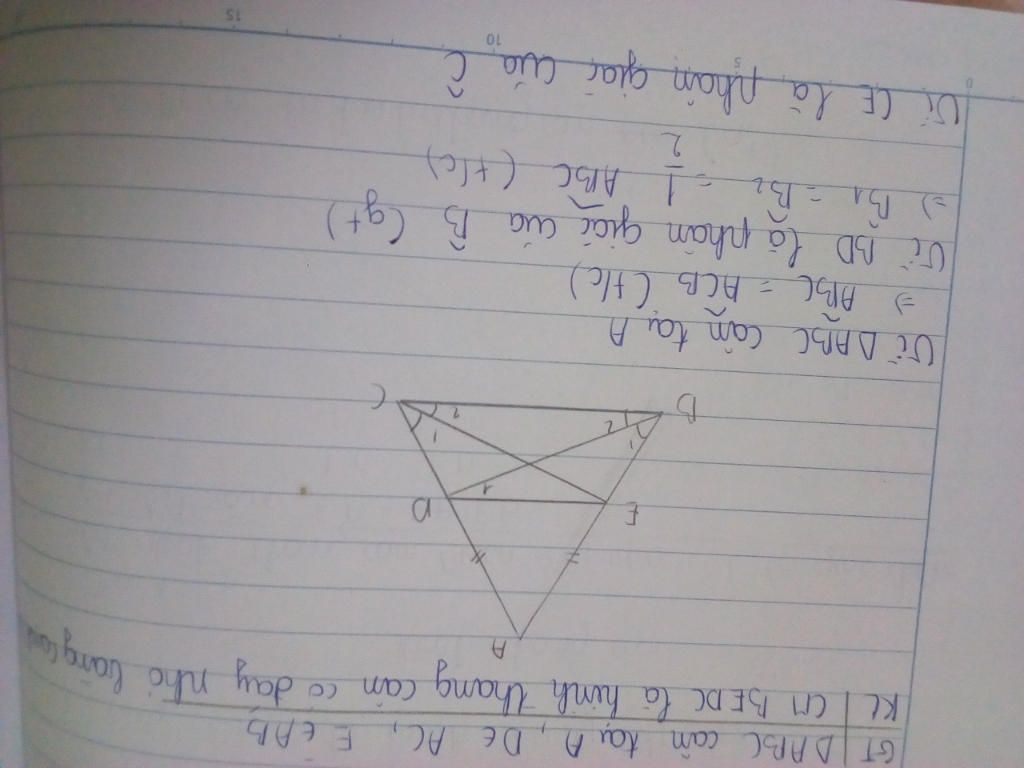 GT | ΔABC cân tại A, D ∈ AC, E ∈ AB
KL | CM BEDC là hình thang cân có đáy nhỏ bằng
A
E
D
1
1
2
1
2
B
C
Vì ΔABC cân tại A
⇒ ABĈ = ACB̂ (t/c)
Vì BD là phân giác của B̂ (gt)
⇒ B̂1 = B̂2 = 1/2 ABĈ (t/c)
Vì CE là phân giác của Ĉ
0
5
10
15